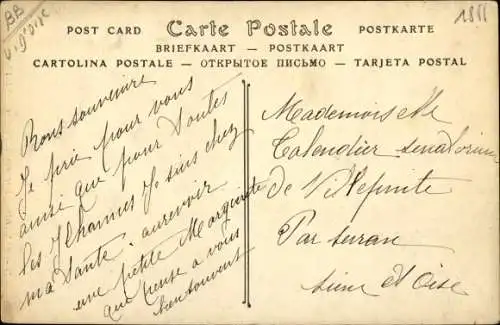 BB
V. D'OISE
1851
POST CARD Carte Postale POSTKARTE
BRIEFKAART — POSTKAART
CARTOLINA POSTALE — ОТКРЫТОЕ ПИСЬМО — TARJETA POSTAL
Bons souvenire
Je prie pour vous
ainsi que pour toutes
les Je suis chez
ma tante. aurevoir
une petite Marguerite
que pense a vous
bien souvent
Mademoiselle
Calendier senatorium
de Villepinte
Par sevran
seine et Oise